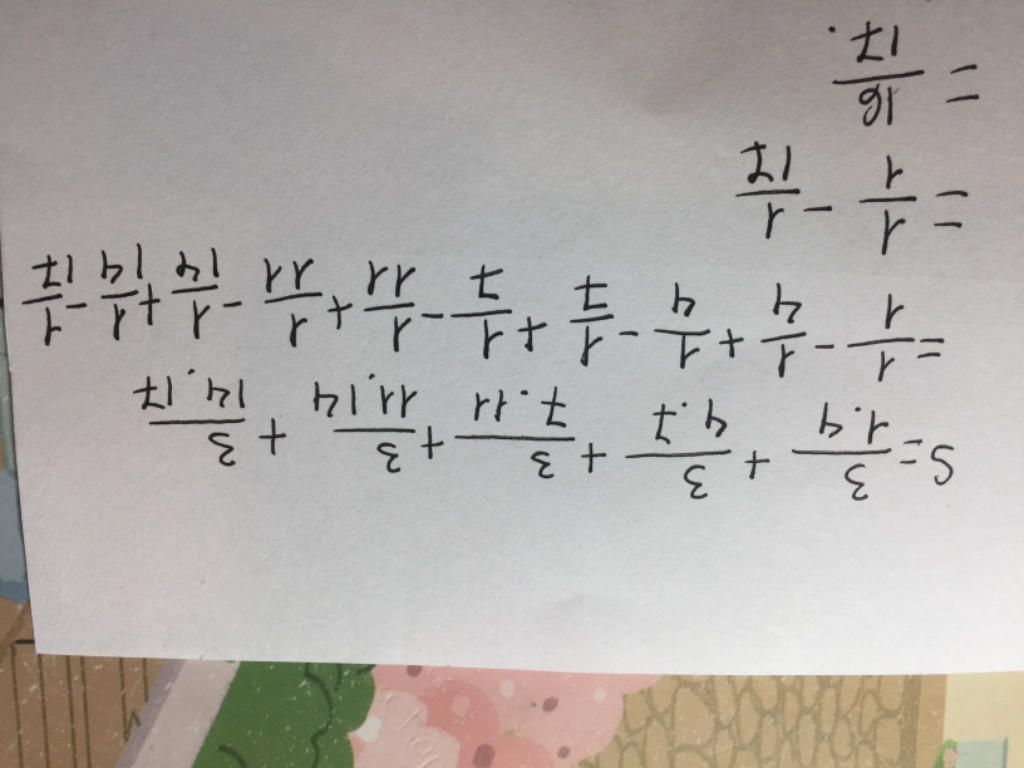 S = 3/1.4 + 3/4.7 + 3/7.11 + 3/11.14 + 3/14.17
= 1/1 - 1/4 + 1/4 - 1/7 + 1/7 - 1/11 + 1/11 - 1/14 + 1/14 - 1/17
= 1/1 - 1/17
= 16/17.